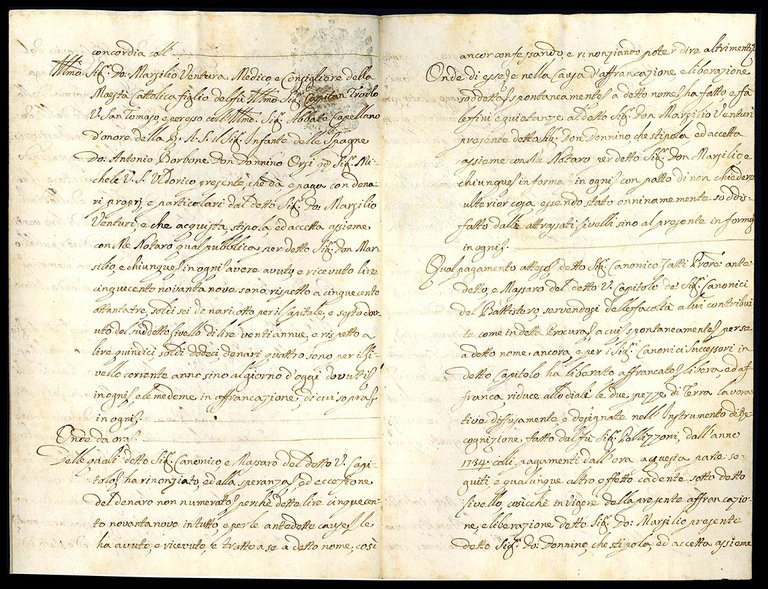 concordia col
Illmo. Sig. Do: Marsilio Ventura Medico, e Consigliere della
Maestà Cattolica figlio del fu Illmo Sig. Capitan
V. San Tomaso, e per esso dell'Illmo. Sig. Abbate Capellano
d'onore della Infante delle Spagne
Do: Antonio Borbone Don Donnino Orsi
V. S. Uldorico presente che dà e paga con dena-
ri proprj, e particolari dal detto Sig. Do: Marsilio
Venturi, e che acquista, stipola, ed accetta assieme
con Me Notaro qual pubblica per detto Sig. Don Mar-
silio, e chiunque in ogni avere avuto, e ricevuto lire
cinquecento novantanove sono rispetto a cinquecento
ottantatre, soldi sei denari otto per il Capitale, e
del suddetto Livello di lire venti annue, e rispetto a
lire quindici soldi dodeci, denari quattro sono per il li-
vello corrente anno sino al giorno d'oggi dovuti
in ogni, e le medeme in affrancazione, di cui sopra
in ogni
Onde da ora
Delle quali detto Sig. Canonico, e Massaro del detto V. Capi-
tolo ha rinonziato, ed alla speranza, ed eccezione
del denaro non numerato perchè dette lire cinquecen-
to novantanove in tutto, e per le antedette cause le
ha avute, e ricevute, e tratte a se a detto nome, così
ancor confessando, e rinonziando poter dire altrimenti
Onde di esse, e nella Causa d'affrancazione, e liberazione
soddetta spontaneamente a detto nome ha fatto, e fà
le fini, e quietanze a detto Sig. Don Marsilio Venturi
presente detto Sig. Don Donnino che stipola, ed accetta
assieme con Me Notaro per detto Sig. Don Marsilio, e
chiunque in forma in ogni con patto di non chiedere
ulterior cosa, essendo stato onninamente soddis-
fatto dalli attrassati livelli sino al presente in forma
in ogni
Qual pagamento atteso detto Sig. Canonico Tatti ante-
detto, e Massaro del detto V. Capitolo de Sig. Canonici
del Battistero, servendosi delle facoltà a lui contribui-
te come in detta Procura a cui spontaneamente per se
a detto nome ancora, e per i Sig. Canonici Successori in
detto Capitolo hà liberato affrancato libera, ed af-
franca riduce allodiali le due pezze di Terra lavora-
tive diffusamente, e designate nell'Instrumento di Re-
cognizione fatto dal fù Sig. Pellizzoni, dall'anno
1734. colli pagamenti dall'ora a questa parte se-
guiti, e qualunque altro effetto cadente sotto detto
livello, cosicchè in vigore della presente affrancazio-
ne, e liberazione detto Sig. Do: Marsilio presente
detto Sig. Do: Donnino, che stipola, ed accetta assieme